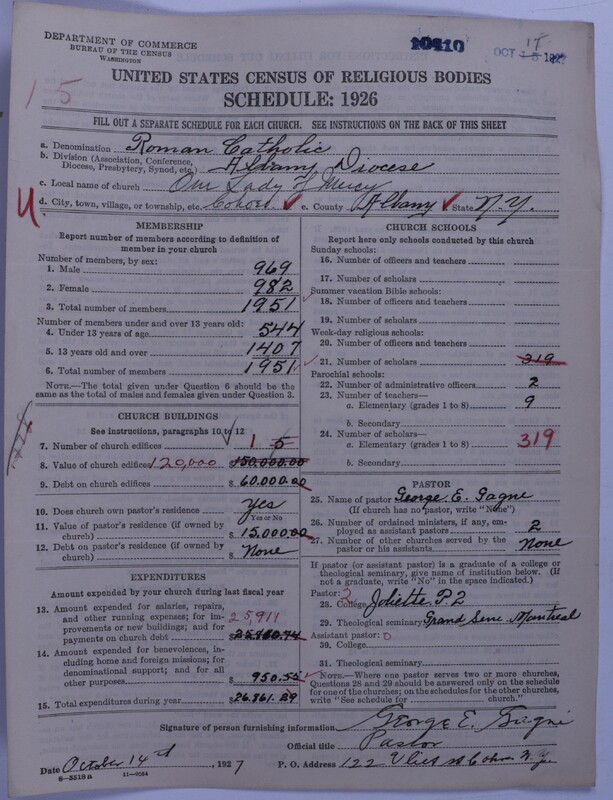 DEPARTMENT OF COMMERCE
BUREAU OF THE CENSUS
WASHINGTON
10410
OCT 15 1927
17
15
UNITED STATES CENSUS OF RELIGIOUS BODIES
SCHEDULE: 1926
FILL OUT A SEPARATE SCHEDULE FOR EACH CHURCH. SEE INSTRUCTIONS ON THE BACK OF THIS SHEET
a. Denomination Roman Catholic
b. Division (Association, Conference, Diocese, Presbytery, Synod, etc.) Albany Diocese
c. Local name of church Our Lady of Mercy
d. City, town, village, or township, etc. Cohoes e. County Albany State N.Y.
MEMBERSHIP
Report number of members according to definition of
member in your church
Number of members, by sex:
1. Male 969
2. Female 982
3. Total number of members 1951
Number of members under and over 13 years old:
4. Under 13 years of age 544
5. 13 years old and over 1407
6. Total number of members 1951
NOTE.—The total given under Question 6 should be
the same as the total of males and females given under Question 3.
CHURCH BUILDINGS
See instructions, paragraphs 10 to 12
7. Number of church edifices 1 5
8. Value of church edifices 120,000 $150,000.00
9. Debt on church edifices $60,000.00
10. Does church own pastor's residence Yes
(Yes or No)
11. Value of pastor's residence (if owned by
church) $15,000.00
12. Debt on pastor's residence (if owned by
church) $None
EXPENDITURES
Amount expended by your church during last fiscal year
13. Amount expended for salaries, repairs,
and other running expenses; for im-
provements or new buildings; and for
payments on church debt 25,911
14. Amount expended for benevolences,
including home and foreign missions; for
denominational support; and for all
other purposes $950.55
15. Total expenditures during year $26.861.29
CHURCH SCHOOLS
Report here only schools conducted by this church
Sunday schools:
16. Number of officers and teachers
17. Number of scholars
Summer vacation Bible schools:
18. Number of officers and teachers
19. Number of scholars
Week-day religious schools:
20. Number of officers and teachers
21. Number of scholars 319
Parochial schools:
22. Number of administrative officers 2
23. Number of teachers—
a. Elementary (grades 1 to 8) 9
b. Secondary
24. Number of scholars—
a. Elementary (grades 1 to 8) 319
b. Secondary
PASTOR
25. Name of pastor George E. Gagne
(If church has no pastor, write "None")
26. Number of ordained ministers, if any, em-
ployed as assistant pastors 2
27. Number of other churches served by the
pastor or his assistants None
If pastor (or assistant pastor) is a graduate of a college or
theological seminary, give name of institution below. (If
not a graduate, write "No" in the space indicated.)
Pastor: 2
28. College Joliette P.2
29. Theological seminary Grand Sem. Montreal
Assistant pastor: 0
30. College
31. Theological seminary
NOTE.—Where one pastor serves two or more churches,
Questions 28 and 29 should be answered only on the schedule
for one of the churches; on the schedules for the other churches,
write "See schedule for church."
Signature of person furnishing information George E. Gagne
Official title Pastor
Date October 14th, 1927 P. O. Address 122 Vliet st Cohoes N.Y.
8—5518 a 11—9034